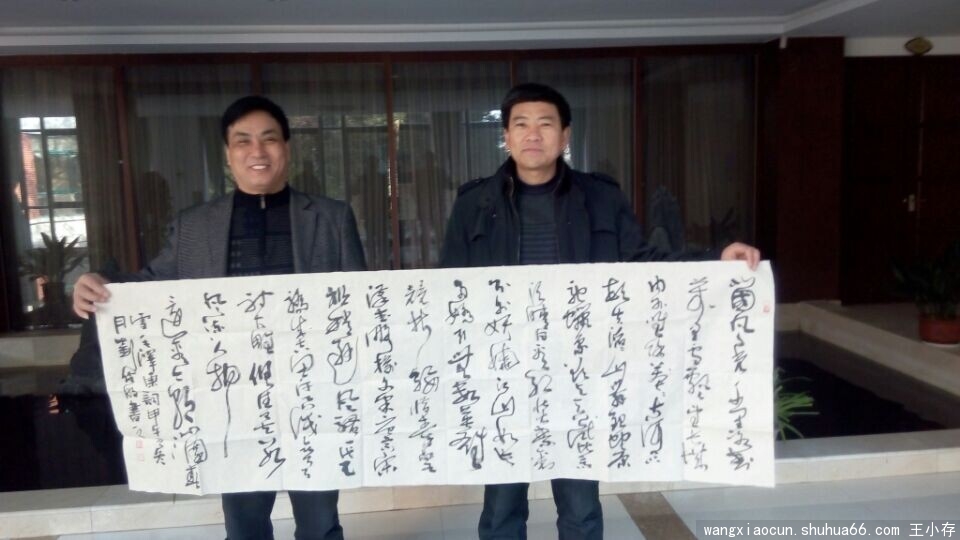 北国风光千里冰封
万里雪飘望长城
内外惟余莽莽大河上下
顿失滔滔山舞银蛇原
驰蜡象欲与天公试比高
须晴日看红装素裹
分外妖娆江山如此
多娇引无数英雄
竞折腰惜秦皇
汉武略输文采唐宗宋
祖稍逊风骚一代
天骄成吉思汗只识弯弓
射大雕俱往矣数
风流人物
还看今朝沁园春
雪毛泽东词甲午
月刘书
wangxiaocun.shuhua66.com 王小存